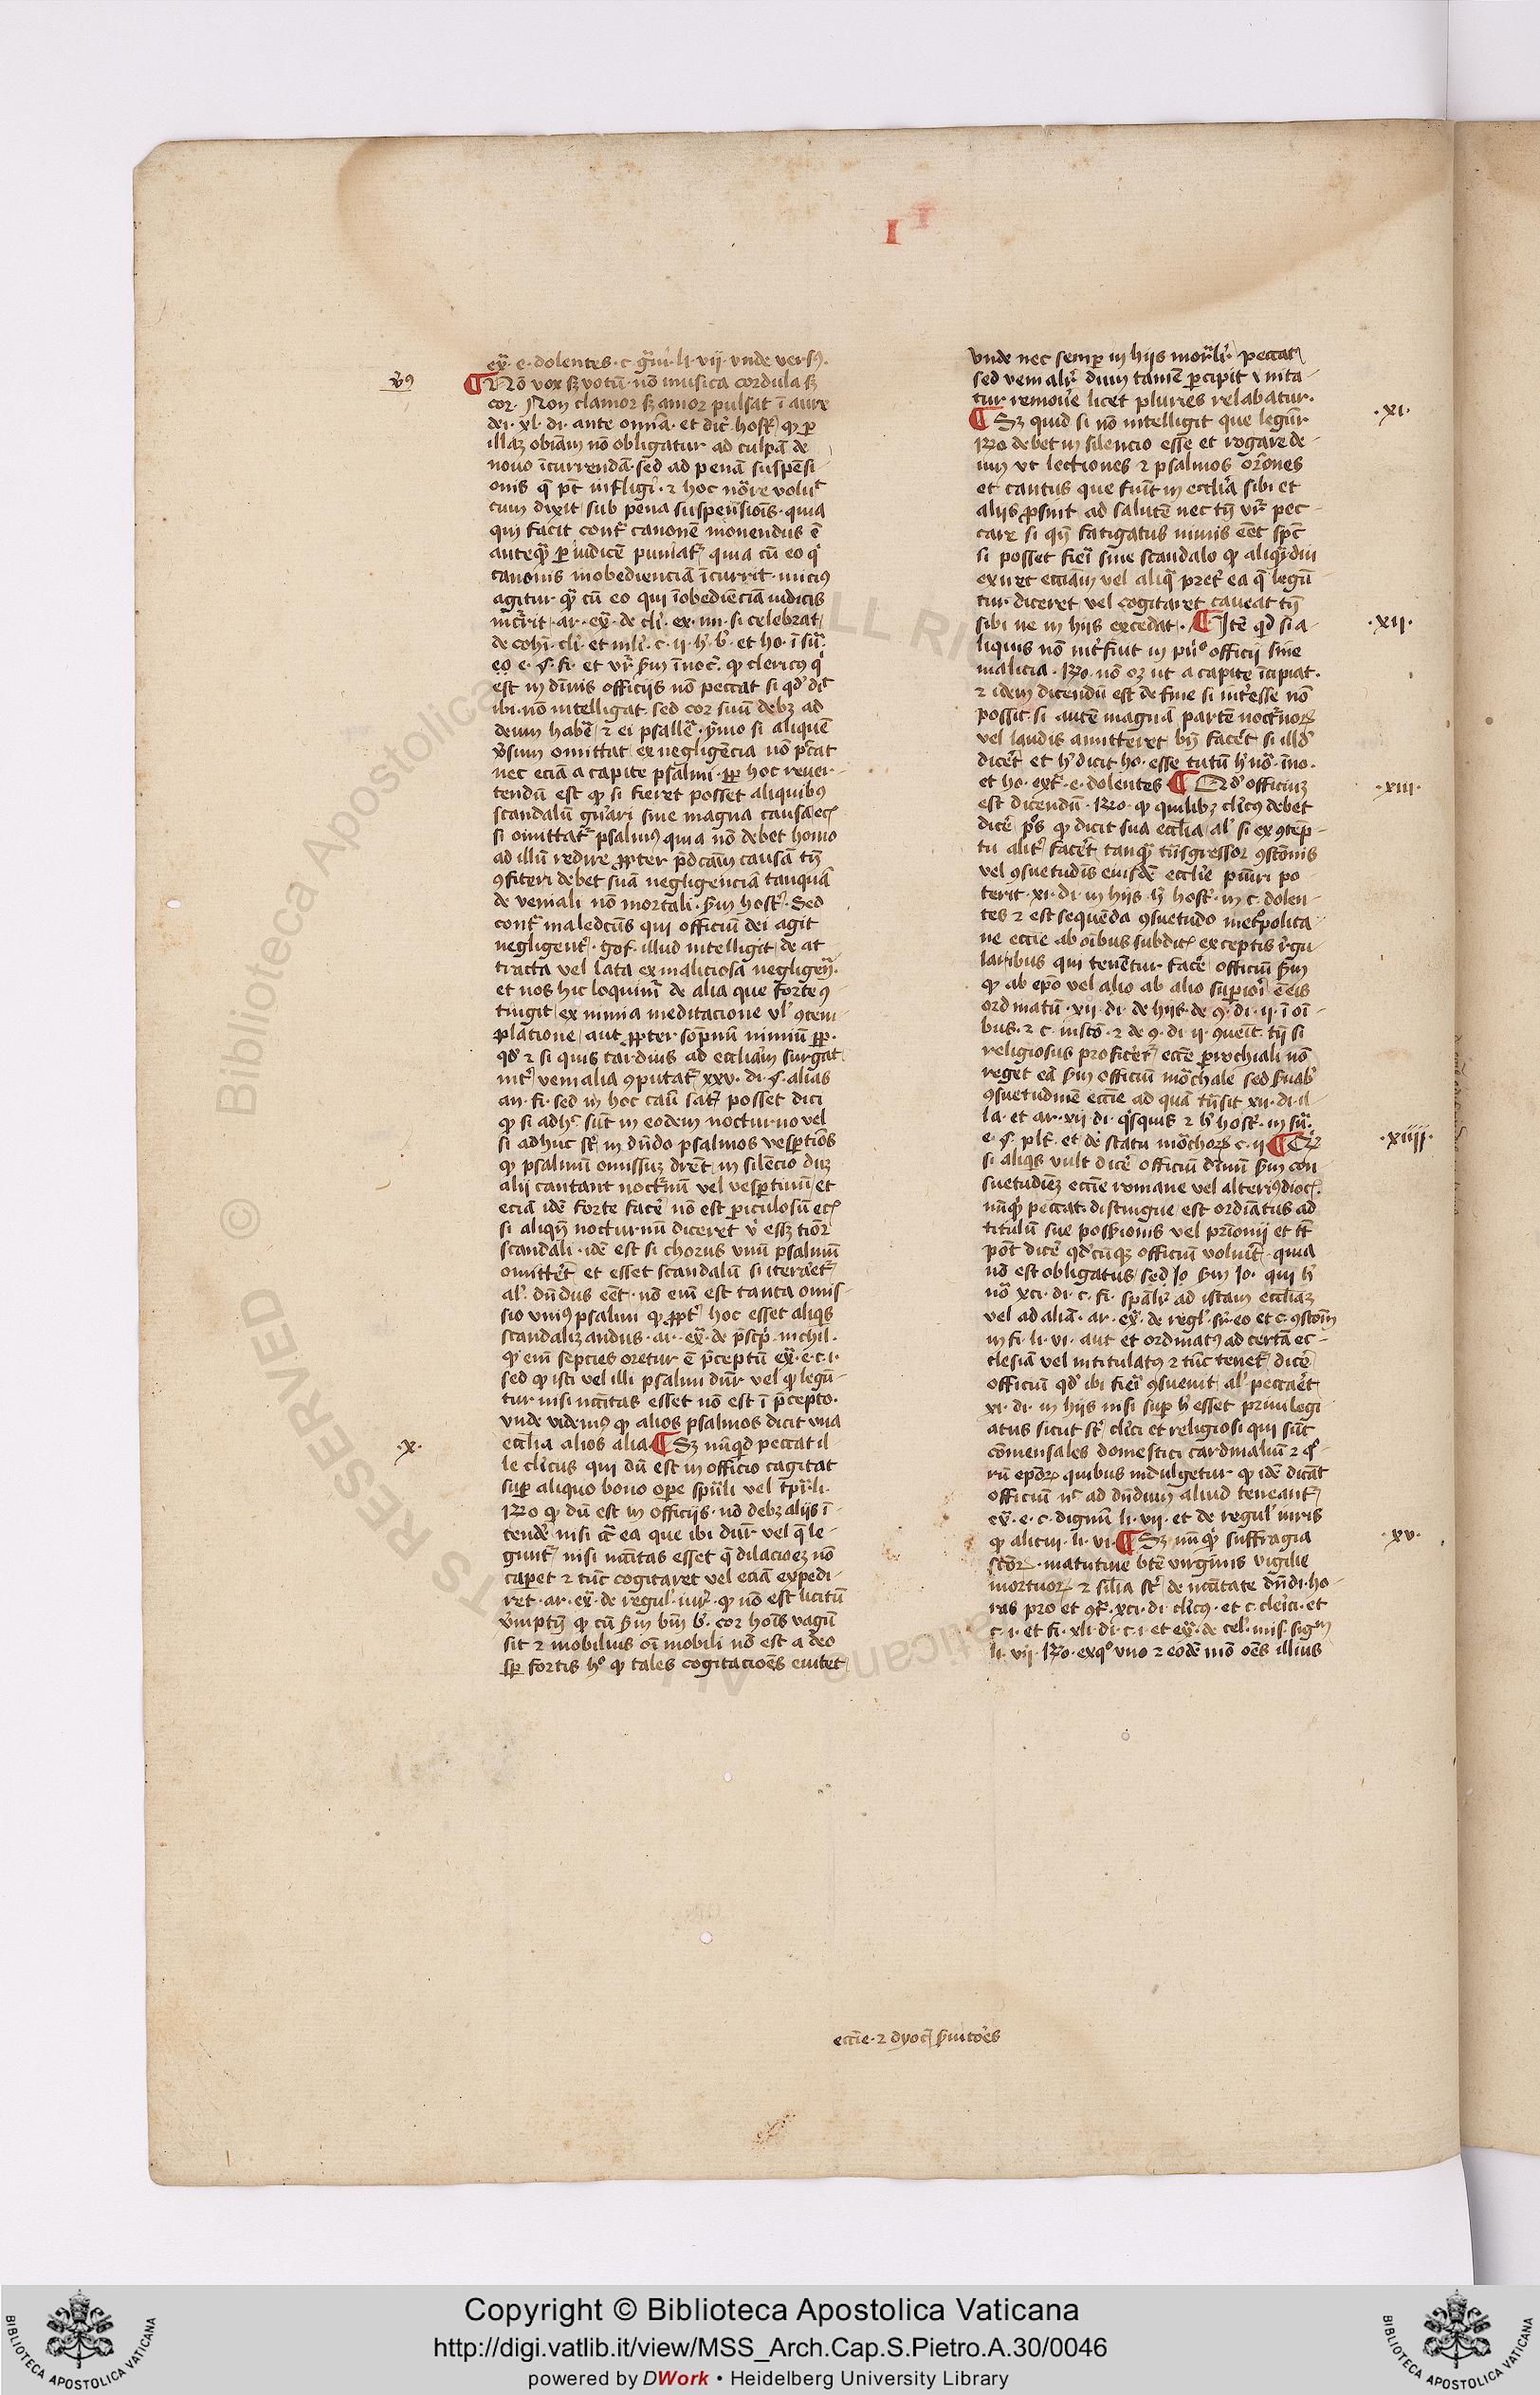 I
ex̄. e. dolentes. c. gͣui. li. vij. vnde versꝰ.
v̄ꝰ
¶ Nō vox sꝫ votū. nō musica cordula sꝫ
cor. Non clamor sꝫ amor pulsat ī aure
dei. xl. di. ante omīa. et dic̄. host. qꝫ ꝑ
illaꝫ obiām nō obligatur ad culpā de
nouo īcurrendā. sed ad penā suspēsi-
onis q̄ pt̄ infligi. ⁊ hoc nōre voluit
cum dixit sub pena suspensiōis. quia
qui facit contᷓ canonē monendus ē
anteqᷓ ꝑ iudicē puniatᷣ quia cū eo qͥ
canonis inobedienciā īcurrit. miciꝰ
agitur qᷓ cū eo qui īobediēciā iudicis
incͣrit. ar. ex̄. de cli. ex. mi. si celebrat
de cohī. cli. et mli. c. ij. h. b. et ho. ī sū.
eo e. §. fi. et vr̄ ẜm inoc̄. qꝫ clericꝰ qͥ
est in dīnis officijs nō peccat si qd̓ dic̄
ibi. nō intelligat. sed cor suū debꝫ ad
deum habē ⁊ ei psallē. ẏmo si aliquē
v̓sum omittat ex negligēcia nō pͨcat
nec eciā a capite psalmi. ꝓꝑ hoc reuer-
tendū est qꝫ si fieret posset aliquibꝰ
scandalū gn̄ari sine magna causa ecꝭ
si omittatᷣ psalmꝰ quia nō debet homo
ad illū redire ꝓpter p̄dcam causā tn̄
ꝯfiteri debet suā negligenciā tanquā
de veniali nō mortali. ẜm host. Sed
contᷓ maledcūs qui officiū dei agit
negligentᷣ. gof. illud intelligit de at
tracta vel lata ex maliciosa negligen̄.
et nos hic loquimᷣ de alia que forte ꝯ
tingit ex nimia meditacione vl̓ ꝯtem-
placione aut ꝓpter sopnū nimiū ꝓꝑ.
qd̓ ⁊ si quis tardius ad eccliam surgat
intᷣ venialia ꝯputatᷣ xxv. di. §. alias
an. fi. sed in hoc casu satꝭ posset dici
qꝫ si adhᶜ sūt in eodem nocturno vel
si adhuc sͭ in dn̄do psalmos vesꝑtiōs
qꝫ psalmū omissuꝫ dicēt in silēcio duꝫ
alij cantant noctᷣnū vel vesꝑtinū et
eciā idē forte facē nō est ꝑiculosū ecꝭ
si aliqn̄ nocturnū diceret v̓ essꝫ tiōr
scandali. idē est si chorus vnū psalmū
omittēt et esset scandalū si iteraretᷣ
al̓. dn̄dus eēt. nō enī est tanta omis-
sio vniꝰ psalmi qꝫ ꝓptᷣ hoc esset aliqͥs
scandalizandus. ar. ex̄. de p̄scp̄. nichil.
qꝫ enī sepcies oretur ē p̄ceptū ex̄. e. c. i.
sed qꝫ isti vel illi psalmi dn̄r vel qꝫ legū-
tur nisi nc̄citas esset nō est ī p̄cepto.
vnde videmꝰ qꝫ alios psalmos dicit vna
.x.
ecclīa alios alia ¶ Sꝫ nūqd̓ peccat il
le cl̓icus qui dū est in officio cagitat
suꝑ aliquo bono oꝑe spūali vel tp̄r̄li.
R̄o qꝫ dū est in officijs. nō debꝫ alijs ī-
tendē nisi circᷓ ea que ibi dn̄r vel q̄ le-
gūtᷣ nisi nc̄citas esset q̄ dilacioēꝫ nō
caperet ⁊ tūc cogitaret vel eciā expedi-
ret. ar. ex̄. de regul̓. iur̓. qꝫ nō est licitū
v̄mptn̄ qꝫ cū ẜm bm̄ b. cor hoīs vagū
sit ⁊ mobilius oī mobili nō est a deo
sꝑ fortis hō qꝫ tales cogitacioēs euitet
vnde nec semꝑ in hijs mortᷣlr̓ peccat
sed venialr̓ dum tamē ꝑcipit ⁊ nita-
tur remouē licet pluries relabatur.
.xi.
¶ Sꝫ quid si nō intelligit que legūtᷣ
R̄o debet in silencio esse et rogare de-
um vt lectiones ⁊ psalmos or̄ones
et cantus que fiūt in ecclīa sibi et
alijs ꝓsint ad salutē nec tn̄ vr̄ pec-
care si qn̄ fatigatus nimis eēt spc̄
si posset fieri sine scandalo qꝫ aliqᷓdiu
exiret ecciam vel aliqͣ pret̓ ea q̄ legū
tur diceret vel cogitaret caueat tn̄
.xii.
sibi ne in hijs excedat. ¶ Itē qd̓ si a-
liquis nō int̓fuit in pn̓º officij sine
malicia. R̄o. nō oꝫ ut a capite īcipiat.
⁊ idem dicendū est de fine si int̓esse nō
possit. si autē magnā partē noctᷣnoꝝ
vel laudis amitteret bn̄ facēt si illd̓
dicēt et h̓ dicit ho. esse tutū h̓ nō. ino.
.xiii.
et ho. extᷓ. e. dolentes ¶ Qd̓ officiuꝫ
est dicendū. R̄o. qꝫ quilibꝫ cl̓icꝰ debet
dicē pͦs qꝫ dicit sua ecclīa al̓ si ex ꝯtēp-
tu alit̓ facēt tanqᷓ tn̄sgressor ꝯstonis
vel ꝯsuetudīs eiusdē ecclie puniri po
terit. xi. di. in hijs. h. host. in c. dolen-
tes ⁊ est sequēda ꝯsuetudo metͦpolita-
ne eccīe ab oībus subditꝭ exceptis r̓gu-
laribus qui tenētur facē officiū ẜm
qꝫ ab epō vel alio ab alio suꝑiori ē eis
ordinatū. xij. di. de hijs. de ꝯ. di. ij. ī oī-
bus. ⁊ c. instō. ⁊ de ꝯ. di. ij. ꝯuēīt. tn̄ si
religiosus proficietᷣ ecce parochiali nō
reget eā ẜm officiū mōchale sed ẜuabͥ
ꝯsuetudinē eccīe ad quā tn̄sit xij. di. il-
la. et ar. xij. di. qͥsquis ⁊ h̓ host. in sū.
.xiiij.
e. §. plt̄. et de statu mōchoꝝ c. ij. ¶ Qꝝ
si aliqͥs vult dicē officiū dīnū ẜm con
suetudiēꝫ eccīe romane vel alteriꝰ dioc̄.
nūqͥd peccat. distingue est ordīatus ad
titulū sue possionis vel pr̄ionij et tc̄
pōt dicē qd̓cūqꝫ officiū voluit. quia
nō est obligatus sed Jo ẜm Jo. qui h̓
nō xci. di. c. fi. spālr̓ ad istam eccliaꝫ
vel ad aliā. ar. ex̄. de regl̓. sr̄. eo et c. ꝯstom̄
in fi. li. vi. aut et ordinatꝰ ad certā ec-
clesiā vel intitulatꝰ ⁊ tūc tenetᷣ dicē
officiū qd̓ ibi fieri ꝯsueuit al̓ peccaret
xi. di. in hijs nisi suꝑ h̓ esset priuilegi
atus sicut sͭ cl̓ici et religiosi qui sūt
cōmensales domestici cardinaliū ⁊ q̄-
rū epōꝝ quibus indulgetur qꝫ idē dicāt
officiū nͨ ad dn̄dum aliud teneantᷣ
ex̄. e. c. dignū li. vij. et de regul̓ iuris
.xv.
qꝫ alicui. li. vi. ¶ Sꝫ nūqͥ suffragia
scōꝝ. matutine btē virginis vigilie
mortuoꝝ ⁊ silīa sͭ de nc̄citate dn̄di. ho-
ras pro et ꝯtᷓ. xci. di. cl̓icꝰ. et c. cleici. et
c. i. et fi. xli. di. c. i. et ex̄. de cel̓. mis. sigᵐ
li. vij. R̄o. exqͦ vno ⁊ eodē mō oēs illius
eccīe. ⁊ dyoc̄ ẜuitōēs
Copyright © Biblioteca Apostolica Vaticana
http://digi.vatlib.it/view/MSS_Arch.Cap.S.Pietro.A.30/0046
powered by DWork • Heidelberg University Library
BIBLIOTECA APOSTOLICA VATICANA
BIBLIOTECA APOSTOLICA VATICANA